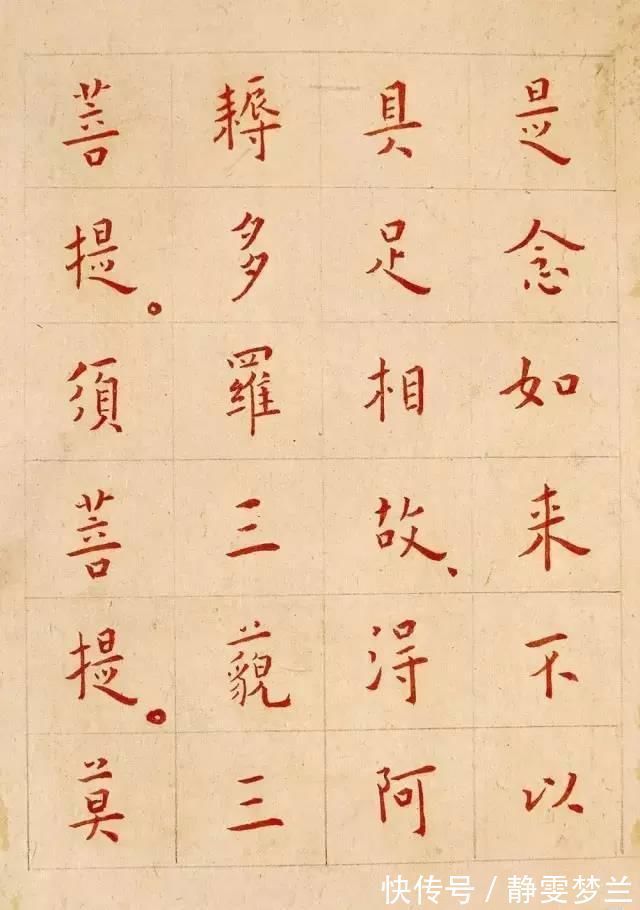 是念如来不以
具足相故、得阿
耨多羅三藐三
菩提。須菩提。莫
快传号/静雯梦兰